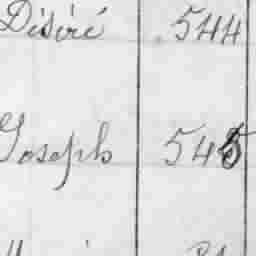 Désiré 544
Joseph 545